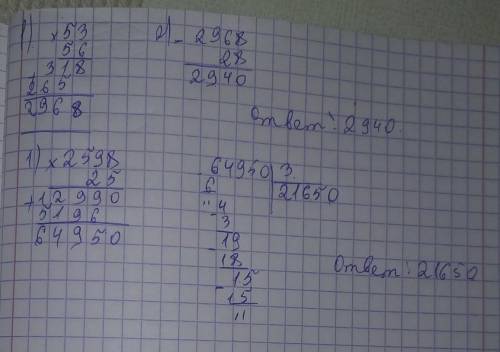 1) × 53
56
318
265
2968
2) - 2968
28
2940
Ответ: 2940.
1) × 2598
25
+ 12990
5196
64950
64950 3
6 21650
" 4
- 3
19
- 18
15
- 15
"
Ответ: 21650